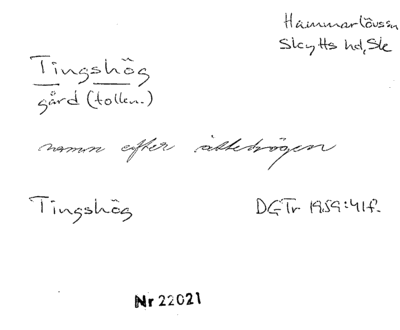 Hammarlövs sn
Skytts hd, Ske
Tingshög
gård (tollen.)
namn efter ättehögen
Tingshög
DGTr 1959:41f.
Nr 22021